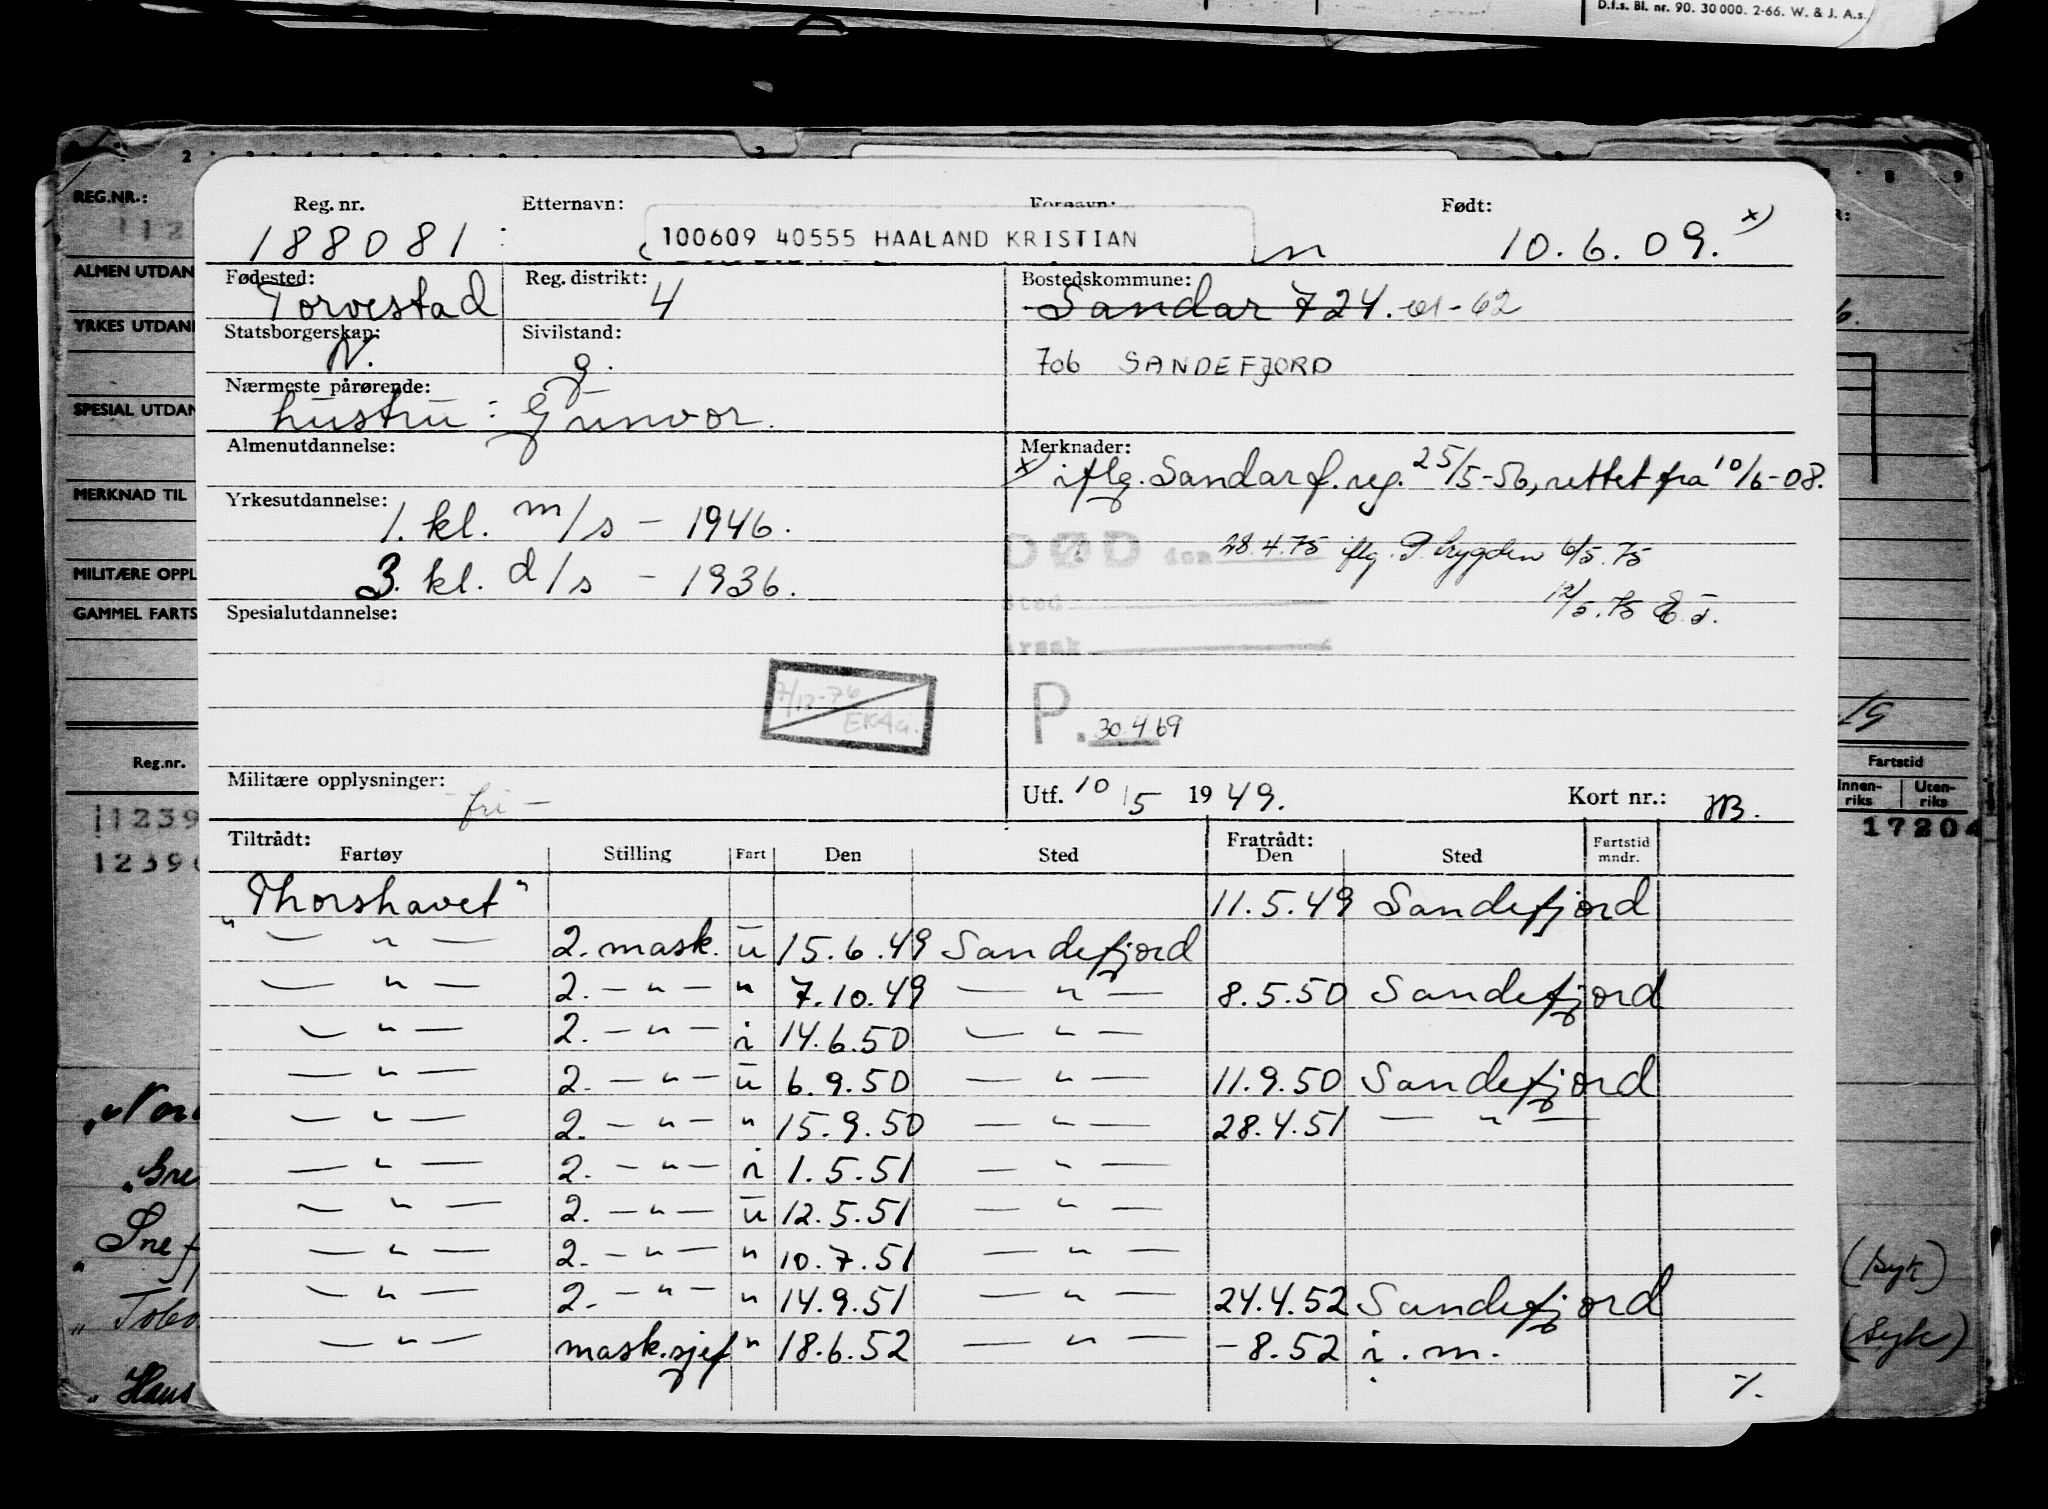 D.f.s. Bl. nr. 90. 30 000. 2-66. W. & J. A.s.
REG.NR.:
ALMEN UTDAN
YRKES UTDAN
SPESIAL UTDAN
MERKNAD TIL
MILITÆRE OPPL
GAMMEL FARTS
Reg.nr.
11239
12390
Reg. nr. Etternavn: Fornavn: Født:
188081 100609 40555 HAALAND KRISTIAN n 10.6.09. x)
Fødested: Reg. distrikt: Bostedskommune:
Torvestad 4 Sandar 724. 01-62
Statsborgerskap: Sivilstand:
N. g. 706 SANDEFJORD
Nærmeste pårørende:
hustru: Gunvor.
Almenutdannelse: Merknader:
x) iflg. Sandar f.reg. 25/5-56, rettet fra 10/6-08.
Yrkesutdannelse:
1. kl. m/s - 1946.
DØD den 28.4.75 iflg. P. trygden 6/5.75
3. kl. d/s - 1936.
Sted 12/5.75
Spesialutdannelse:
Årsak
7/12-76
P. 30.4.69
Militære opplysninger: - fri - Utf. 10/5 1949. Kort nr.:
Tiltrådt: Fratrådt:
Fartøy Stilling Fart Den Sted Den Sted Fartstid mndr.
"Thorshavet" 11.5.49 Sandefjord
" — " — 2. mask. u 15.6.49 Sandefjord
— " — 2. — " — " 7.10.49 — " — 8.5.50 Sandefjord
— " — 2. — " — i 14.6.50 — " —
— " — 2. — " — u 6.9.50 — " — 11.9.50 Sandefjord
— " — 2. — " — " 15.9.50 — " — 28.4.51 — " —
— " — 2. — " — i 1.5.51 — " —
— " — 2. — " — u 12.5.51 — " —
— " — 2. — " — " 10.7.51 — " —
— " — 2. — " — " 14.9.51 — " — 24.4.52 Sandefjord
— " — mask.sjef " 18.6.52 — " — -8.52 i.m.
Fartstid
Innen-riks Uten-riks
17204
(syk)
(syk)
"Hans